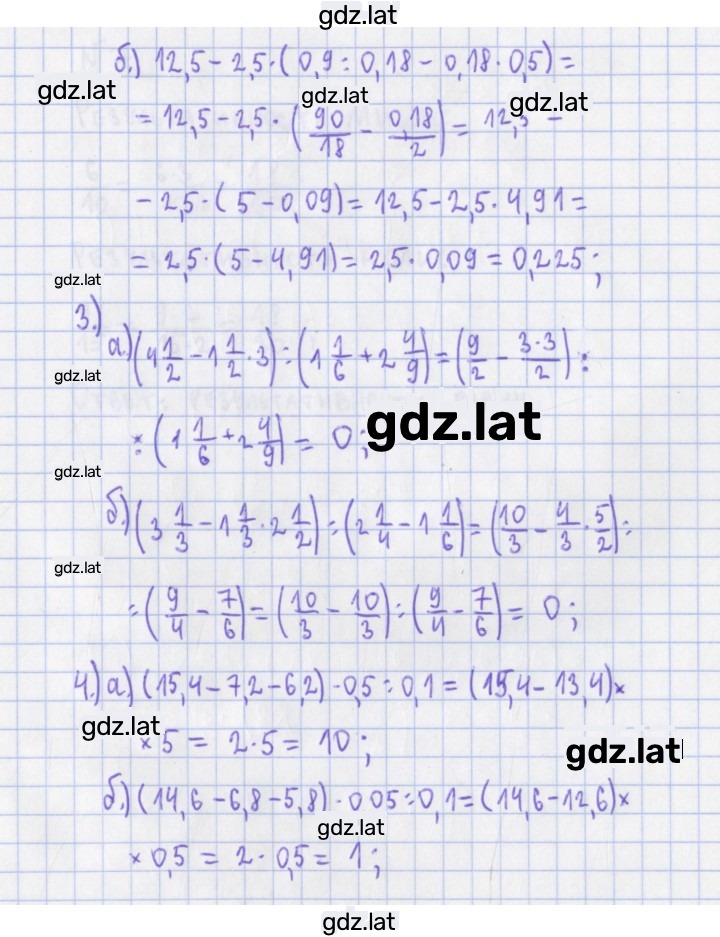 gdz.lat
б.) 12,5 - 2,5 · ( 0,9 : 0,18 - 0,18 · 0,5) =
gdz.lat gdz.lat gdz.lat
= 12,5 - 2,5 · (90/18 - 0,18/2) = 12,5 -
- 2,5 · ( 5 - 0,09) = 12,5 - 2,5 · 4,91 =
= 2,5 · (5 - 4,91) = 2,5 · 0,09 = 0,225;
gdz.lat
3.)
а.) (4 1/2 - 1 1/2 · 3) : (1 1/6 + 2 4/9) = (9/2 - 3·3/2) :
gdz.lat
: (1 1/6 + 2 4/9) = 0;
gdz.lat
gdz.lat
б.) (3 1/3 - 1 1/3 · 2 1/2) : (2 1/4 - 1 1/6) = (10/3 - 4/3 · 5/2) :
gdz.lat
: (9/4 - 7/6) = (10/3 - 10/3) : (9/4 - 7/6) = 0;
4.) а.) (15,4 - 7,2 - 6,2) · 0,5 : 0,1 = (15,4 - 13,4) ×
gdz.lat
× 5 = 2 · 5 = 10;
gdz.lat
б.) (14,6 - 6,8 - 5,8) · 0 05 : 0,1 = (14,6 - 12,6) ×
gdz.lat
× 0,5 = 2 · 0,5 = 1;
gdz.lat